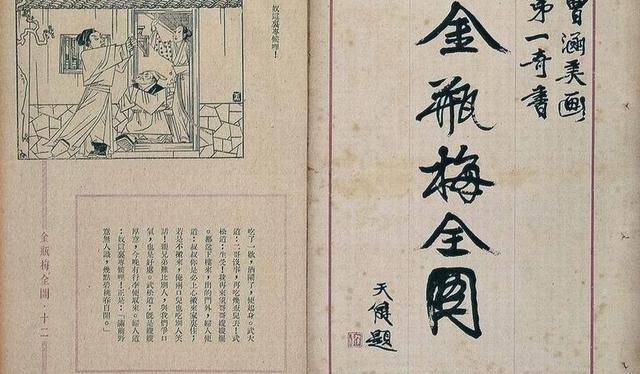 曹涵美画
第一奇書
金瓶梅全圖
天健題
奴這裏專候哩！
吃了一歇，酒闌了，便起身。武大
道：二哥沒事，再吃幾盃兒去！武
松道：生受！我再來望哥哥嫂嫂罷
。都送下樓來，出的門外，婦人便
道：叔叔你是必上心搬來家裏住；
若是不搬來，俺兩口兒也吃別人笑
話！親兄弟難比別人，與我們爭口
氣，也是好處。武松道：旣是嫂嫂
厚意，今晚有行李便取來。婦人道
：奴這裏專候哩！正是：「滿前野
意無人識，幾點碧桃春自開。」
金瓶梅全圖 · 十二